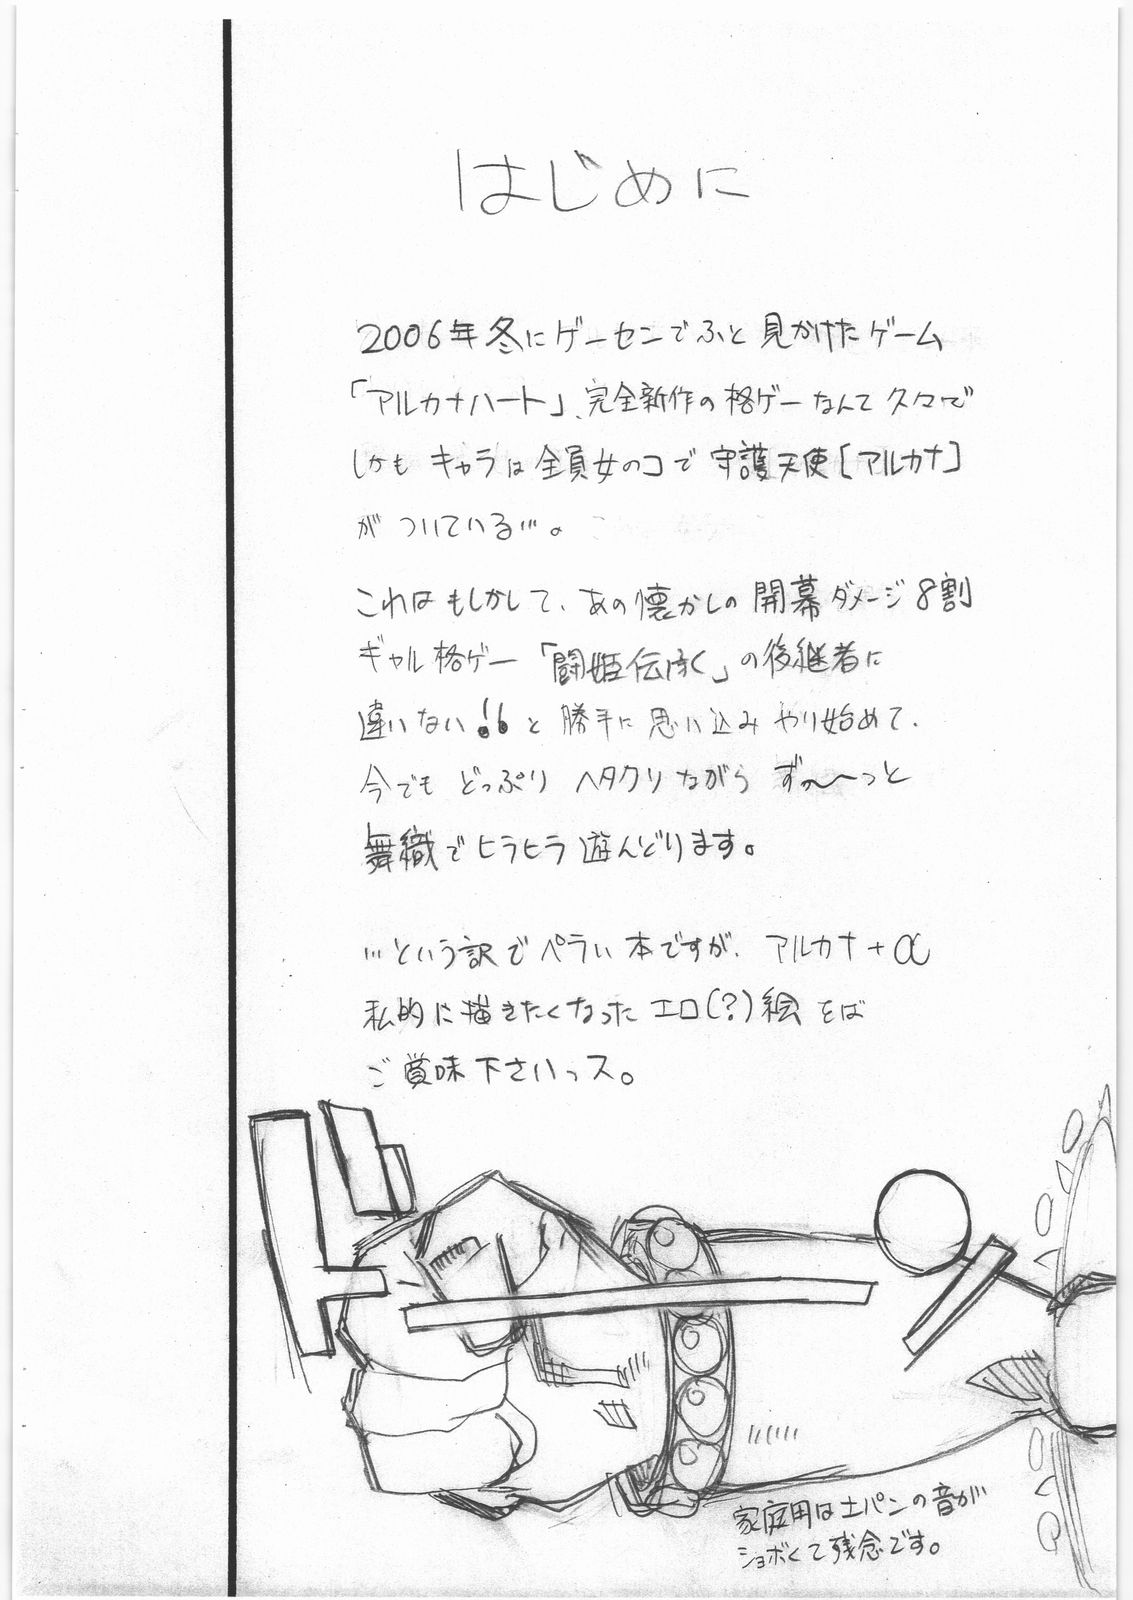 はじめに
2006年冬にゲーセンでふと見かけたゲーム
「アルカナハート」、完全新作の格ゲーなんて久々で
しかもキャラは全員女のコで守護天使[アルカナ]
がついている…。
これはもしかして、あの懐かしの開幕ダメージ8割
ギャル格ゲー「闘姫伝承」の後継者に
違いない!!と勝手に思い込みやり始めて、
今でもどっぷりヘタクソながらずぅ〜〜っと
舞織でヒラヒラ遊んどります。
…という訳でペラい本ですが、アルカナ+α
私的に描きたくなったエロ(?)絵をば
ご賞味下さいっス。
家庭用は土パンの音が
ショボくて残念です。